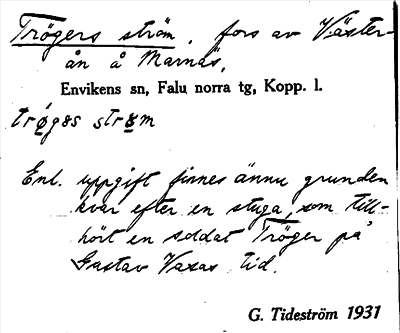 Trögers ström, fors av Väster-
ån å Marnäs,
Envikens sn, Falu norra tg, Kopp. l.
trø̱gəs strø̱m
Enl. uppgift finnes ännu grunden
kvar efter en stuga, som till-
hört en soldat Tröger på
Gustav Vasas tid.
G. Tideström 1931